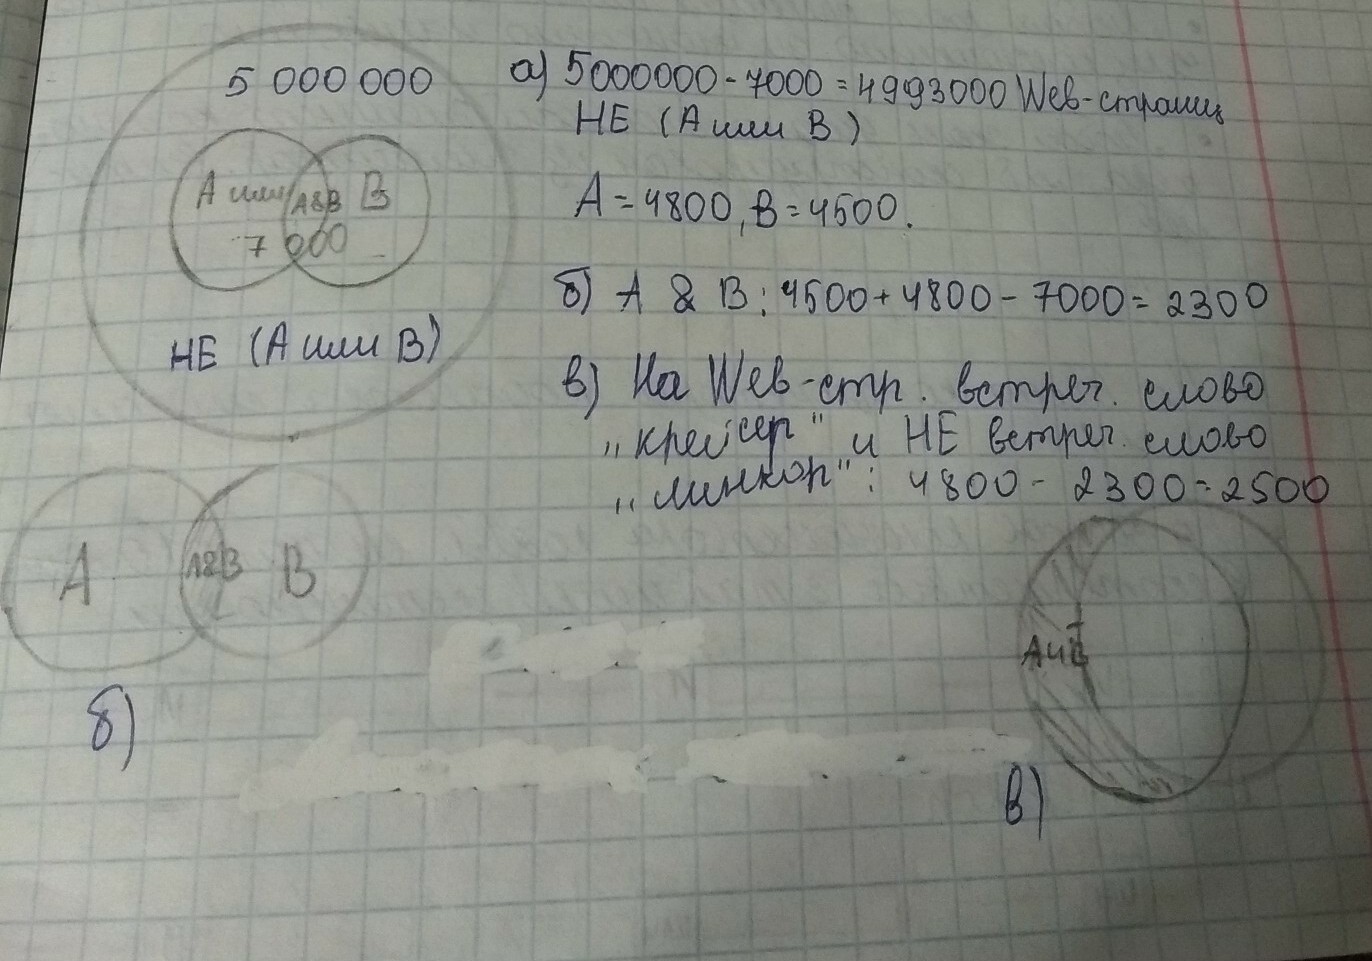 5 000 000
А или А&В В
7 000
НЕ (А или В)
а) 5000000 - 7000 = 4993000 Web-страниц
НЕ (А или В)
А = 4800, В = 4500.
б) А & В: 4500 + 4800 - 7000 = 2300
в) На Web-стр. встреч. слово
„крейсер" и НЕ встреч. слово
„линкор": 4800 - 2300 = 2500
А А&В В
б)
А и B̅
в)